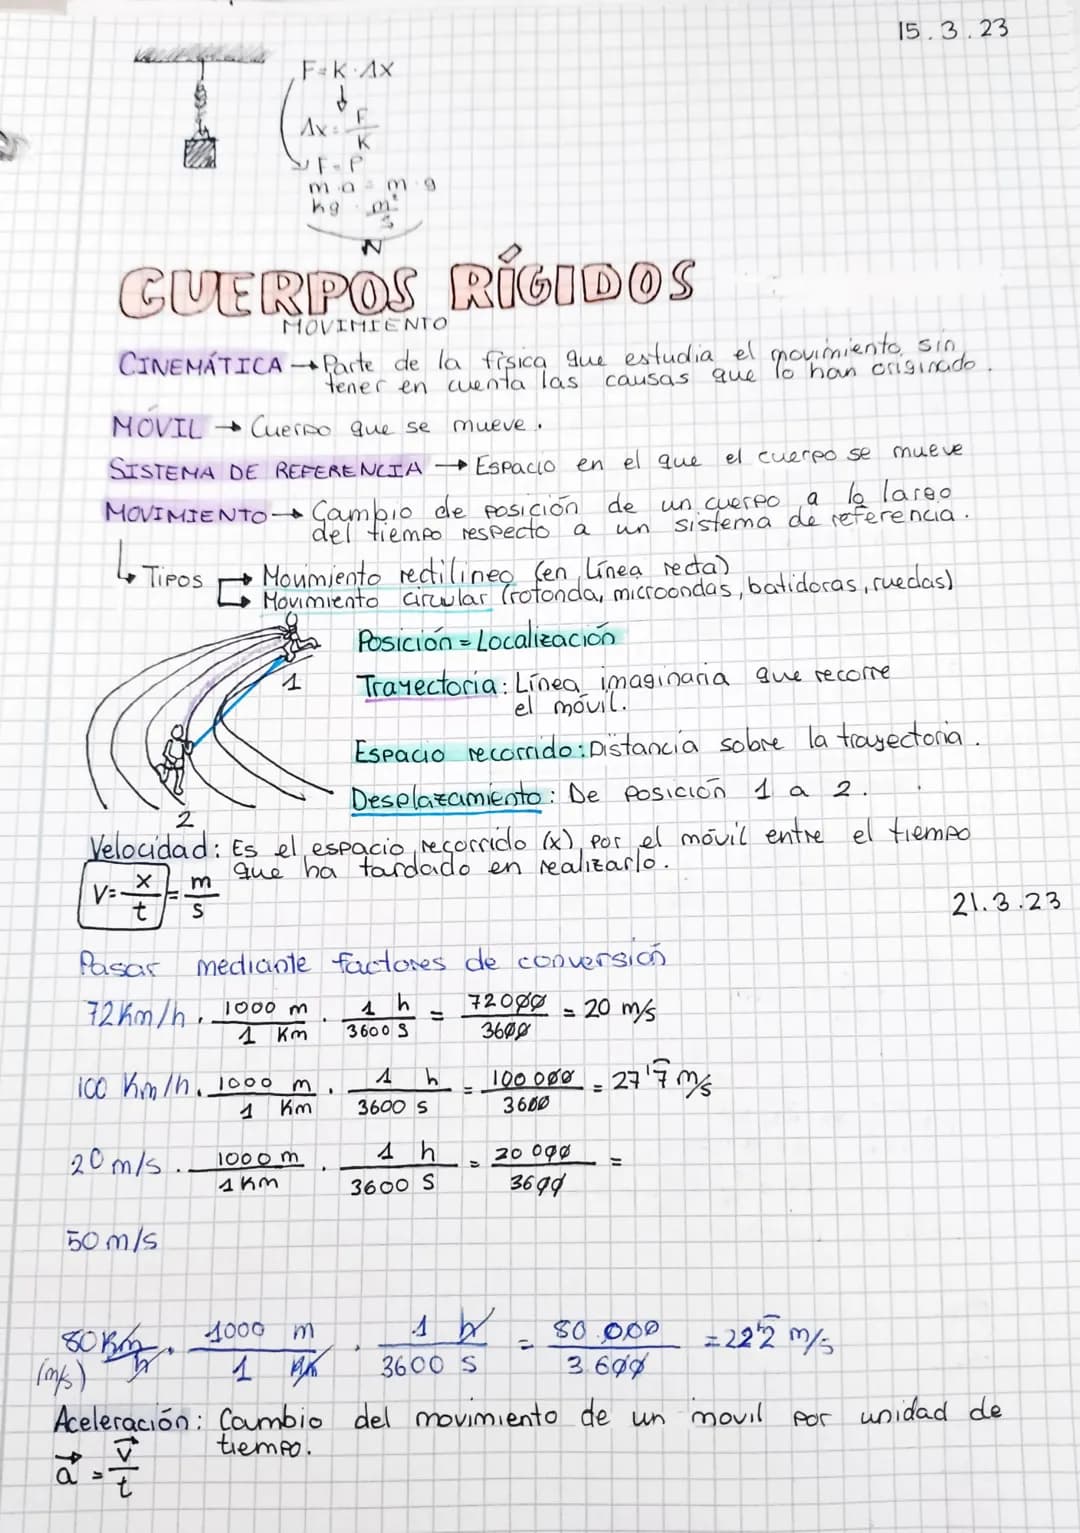 15.3.23
F=K·Δx
↓
Δx=F/K
F=P
m·a=m·g
kg · m²/s
N
CUERPOS RÍGIDOS
MOVIMIENTO
CINEMÁTICA → Parte de la física que estudia el movimiento, sin
tener en cuenta las causas que lo han originado.
MÓVIL → Cuerpo que se mueve.
SISTEMA DE REFERENCIA → Espacio en el que el cuerpo se mueve
MOVIMIENTO → Cambio de posición de un cuerpo a lo largo
del tiempo respecto a un sistema de referencia.
↳ Tipos → Movimiento rectilineo (en línea recta)
→ Movimiento circular (rotonda, microondas, batidoras, ruedas)
Posición = Localización
1
Trayectoria: Línea imaginaria que recorre
el móvil.
Espacio recorrido: Distancia sobre la trayectoria.
Desplazamiento: De posición 1 a 2.
2
Velocidad: Es el espacio recorrido (x) por el móvil entre el tiempo
que ha tardado en realizarlo.
V=x/t = m/s
21.3.23
Pasar mediante factores de conversión
72Km/h · 1000 m/1 Km · 1 h/3600 s = 72000/3600 = 20 m/s
100 Km/h · 1000 m/1 Km · 1 h/3600 s = 100 000/3600 = 27'7̂ m/s
20 m/s · 1000 m/1 Km · 1 h/3600 s = 20 000/3600 =
50 m/s
80 Km/h · 1000 m/1 Km · 1 h/3600 s = 80.000/3.600 = 22'2̂ m/s
(m/s)
Aceleración: Cambio del movimiento de un movil por unidad de
tiempo.
a⃗ = v⃗/t